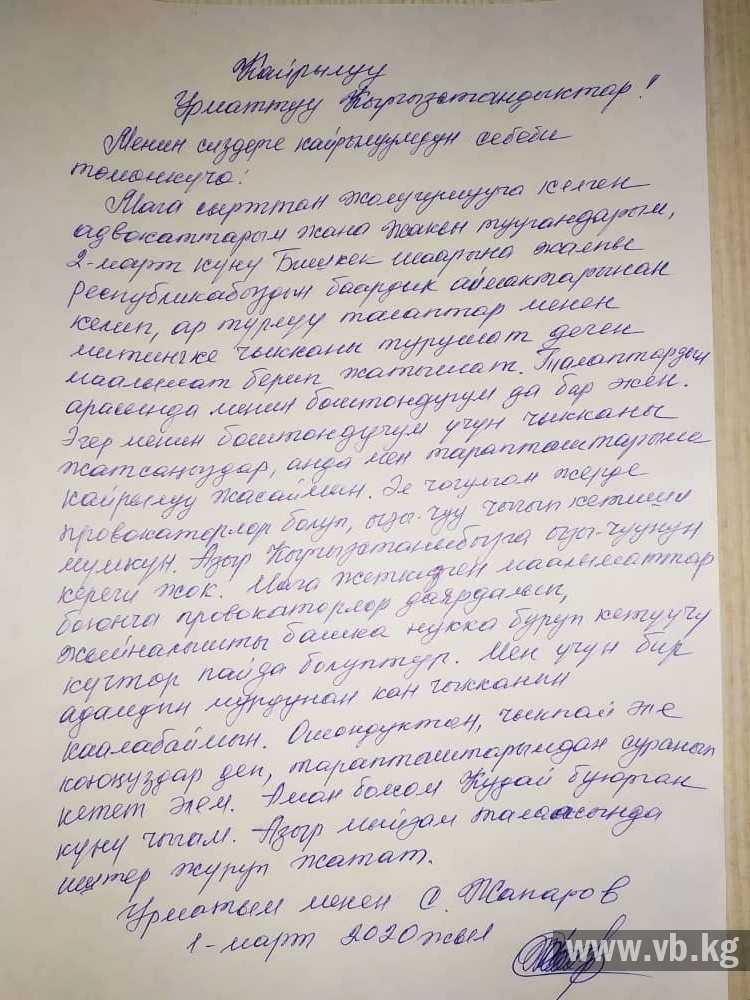 Кайрылуу
Урматтуу Кыргызстандыктар!
Менин сиздерге кайрылуумдун себеби
томонкучо:
Мага сырттан жолугушууга келген
адвокаттарым жана жакын туугандарым,
2-март куну Бишкек шаарына жалпы
Республикабыздын баардык аймактарынан
келип, ар турлуу талаптар менен
митингке чыкканы турушат деген
маалымат берип жатышат. Талаптардын
арасында менин боштондугум да бар экен.
Эгер менин боштондугум учун чыкканы
жатсаңыздар, анда мен тарапташтарыма
кайрылуу жасаймын. Эл чогулган жерде
провокаторлор болуп, ызы-чуу чыгып кетиши
мумкун. Азыр Кыргызстаныбызга ызы-чуунун
кереги жок. Мага жеткирген маалыматтар
боюнча провокаторлор даярдалып,
жыйналышты башка нукка буруп кетуучу
кучтор пайда болуптур. Мен учун бир
адамдын мурдунан кан чыкканын
каалабаймын. Ошондуктан, чыкпай эле
коюңуздар деп, тарапташтарымдан суранып
кетет элем. Аман болсом Кудай буюрган
куну чыгам. Азыр мыйзам талаасында
иштер журуп жатат.
Урматым менен С. Жапаров
1-март 2020 жыл
www.vb.kg